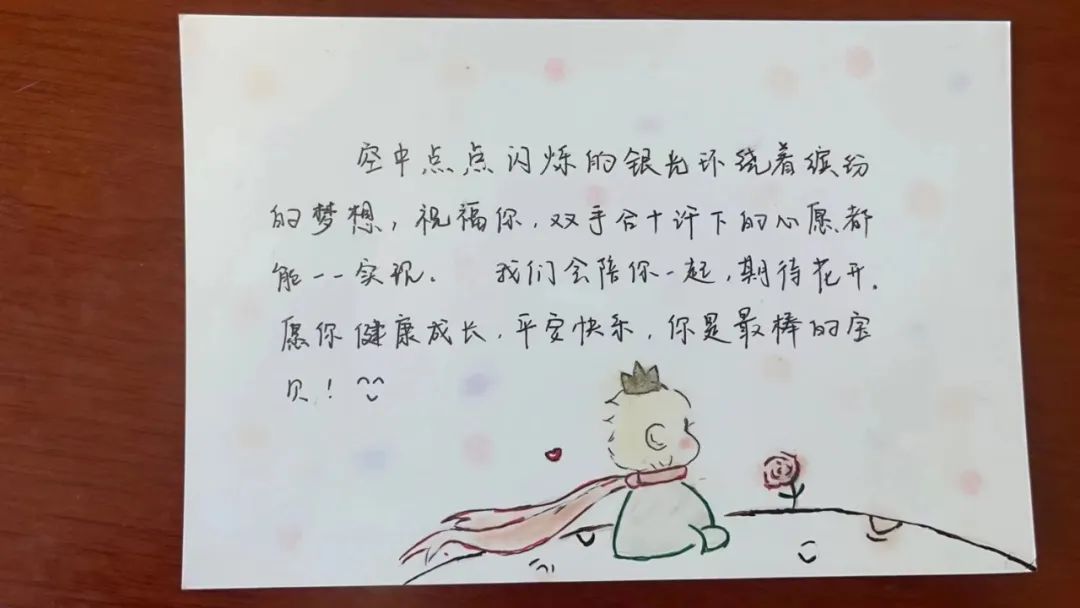 空中点点闪烁的银光环绕着缤纷
的梦想,祝福你,双手合十许下的心愿都
能一一实现. 我们会陪你一起,期待花开.
愿你健康成长,平安快乐,你是最棒的宝
贝!